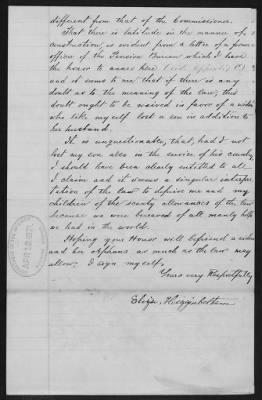 different from that of the Commissioner.
That there is latitude in the manner of
construction, is evident from a letter of a former
officer of the Pension Bureau which I have
the honor to annex here
and it seems to me that if there is any
doubt as to the meaning of the law, this
doubt ought to be waived in favor of a widow
who like myself lost a son in addition to
her husband.
It is unquestionable, that, had I not
lost my son also in the service of his country
I should have been clearly entitled to
claim and it seems a singular interpre-
tation of the law to deprive me and my
children of the scanty allowances of the law
because we were bereaved of all manly help
we had in the world.
Hoping your Honor will befriend a widow
and her Orphans as much as the law may
allow, I sign myself.
Yours very Respectfully
Eliza Higginbotham
APR 12 1871